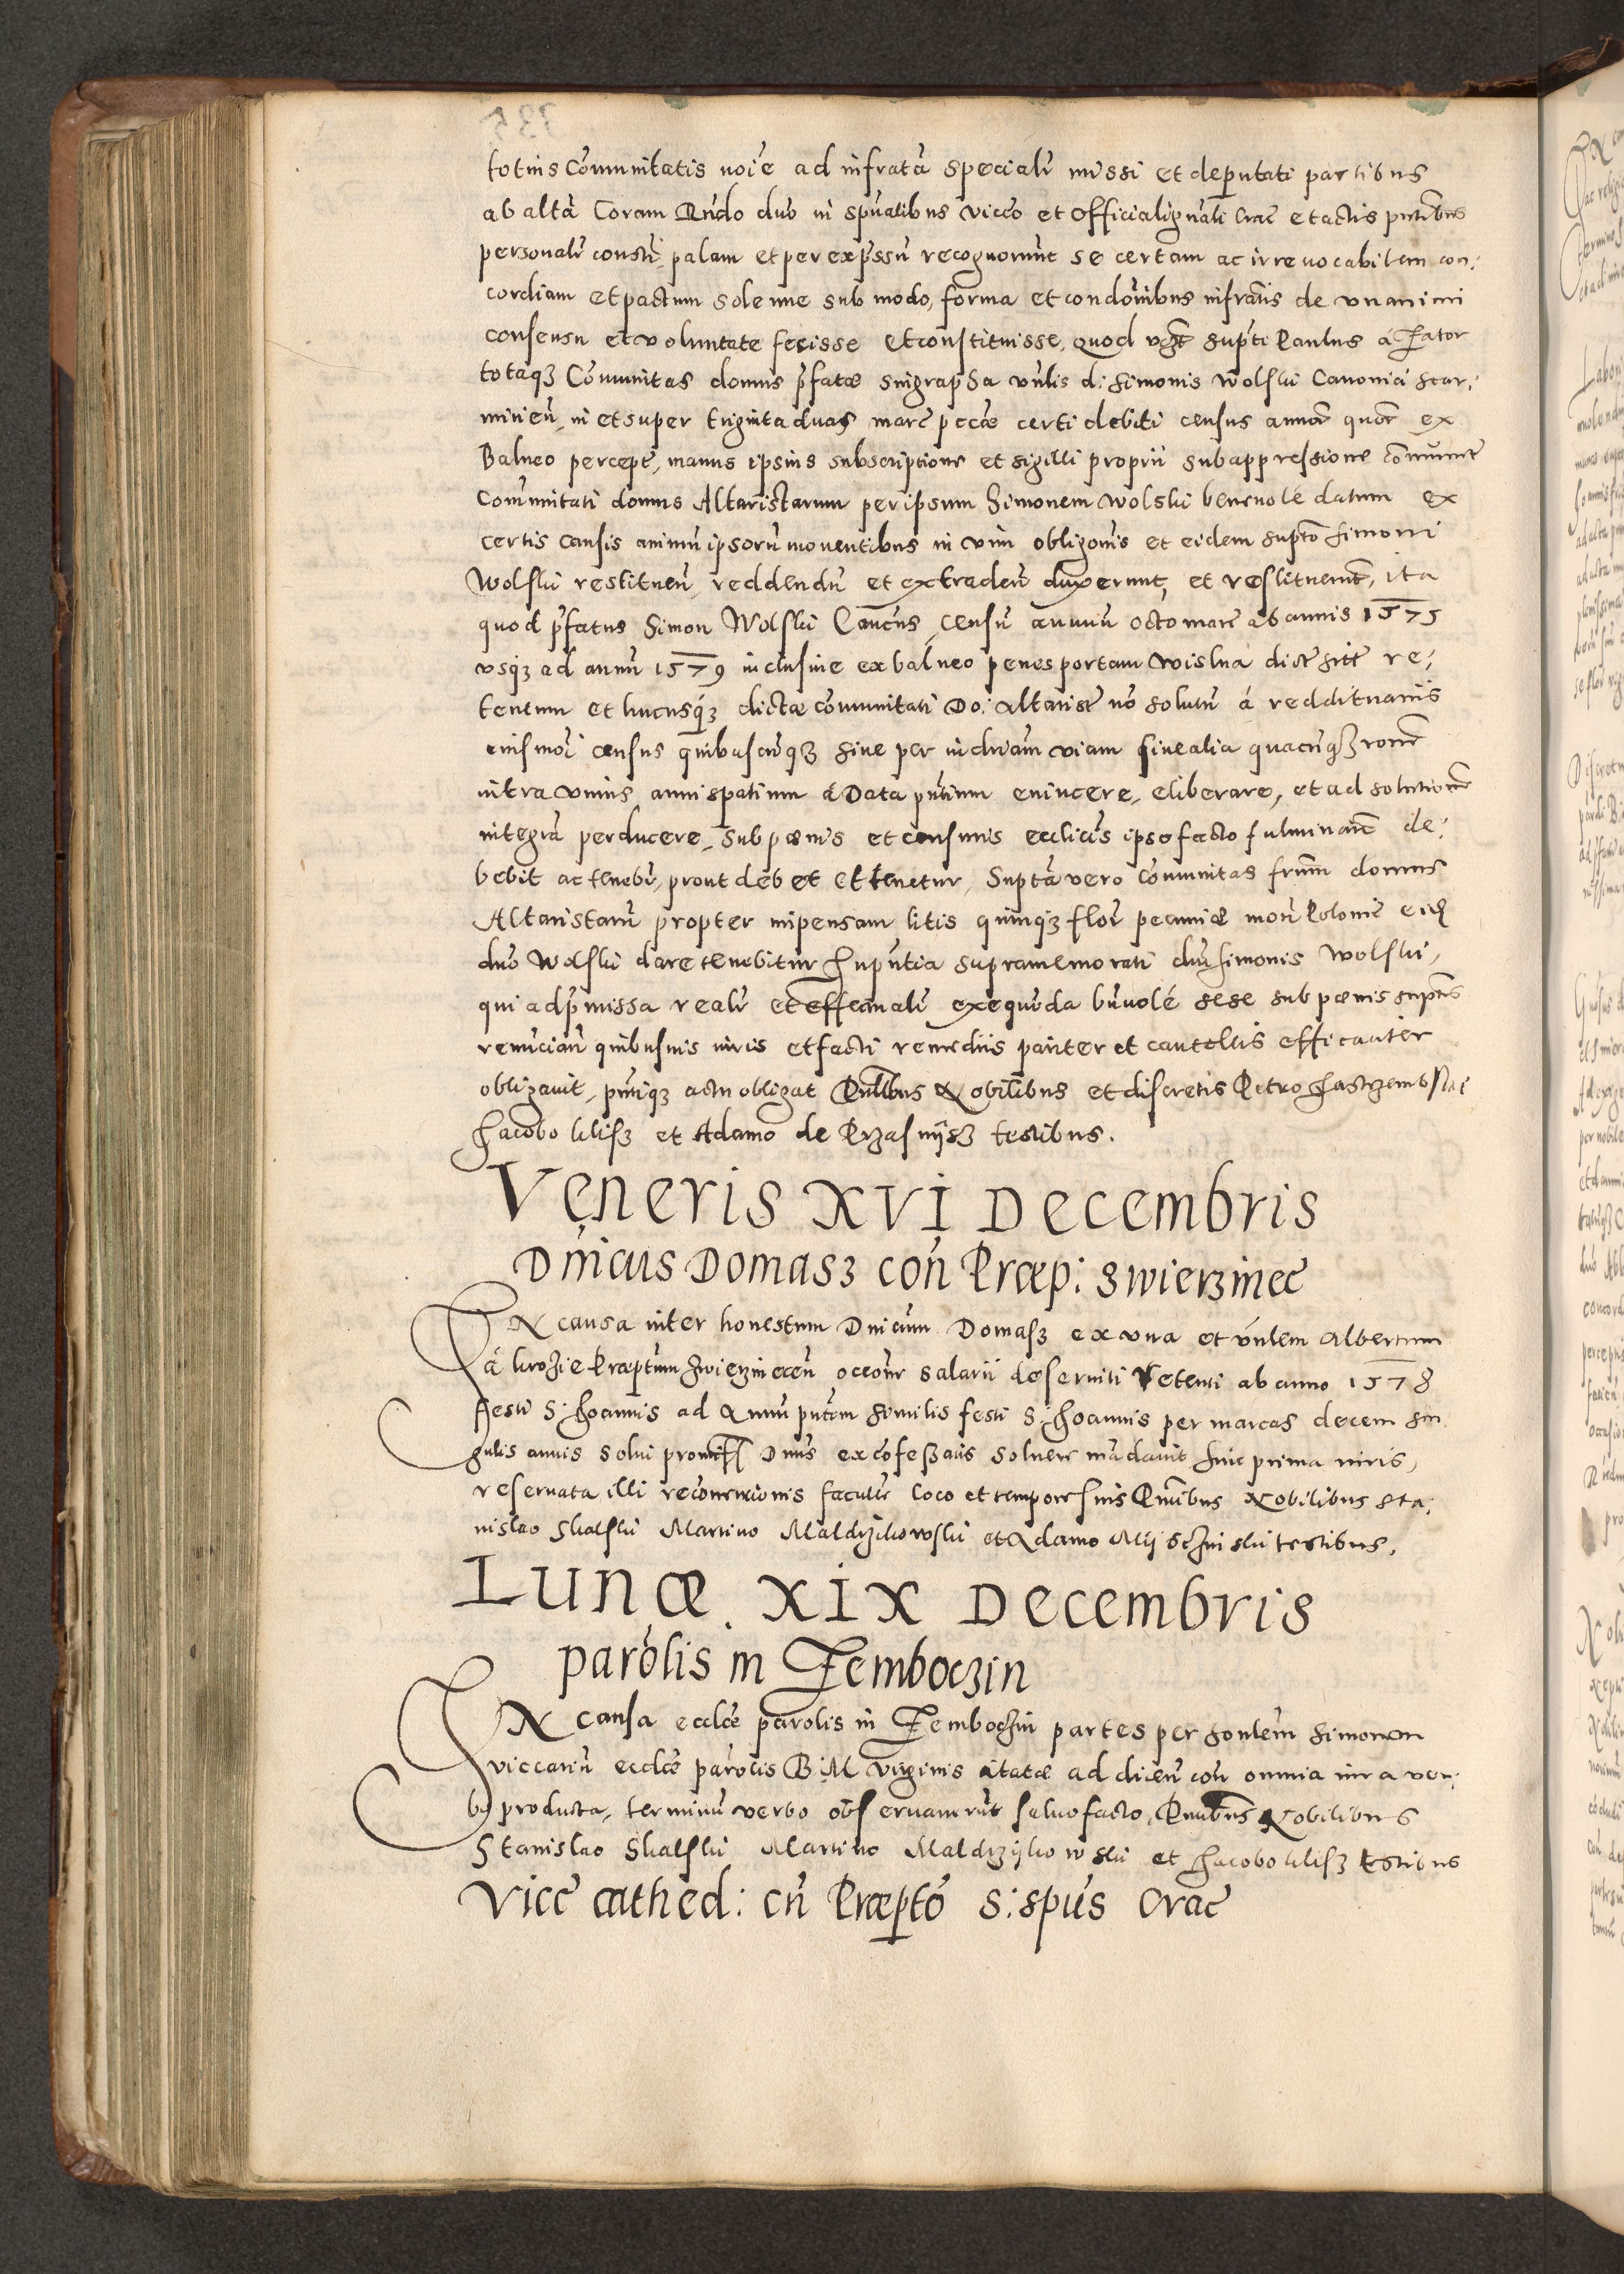 totius Cõmunitatis noĩe ad infratã specialr̃ missi et deputati partibus
ab altã Coram Rñdo dño in spũalibus vicc̃o et Officiali gñali Crac̃ et actis pñtibus
personalr̃ constiĩ palam et per exp̃ssũ recognoverunt se certam ac irrevocabilem con:
cordiam et pactum solenne sub modo, forma et conditõnibus infratis de unanimi
consensu et voluntate fecisse et constituisse, quod supti Paulus á Fator
totaq3 Cõmunitas domus p̃fatæ singrapha vñlis d: Simonis Wolski Canonici scar:
mirieñ, in et super triginta duas marc̃ pccæ certi debiti census annoř quoř ex
Balneo percept̃, manus ipsius subscriptione et sigilli proprii subappressione cõmunit̃
Comunitati domus Altaristarum per ipsum Simonem Wolski benevolé datum ex
certis causis animũ ipsorũ moventibus in vim obligõnis et eidem suptõ Simoni
Wolski restitueñ, reddendũ et extradeñ duxerunt, et restituerunt, ita
quod p̃fatus Simon Wolski Canc̃us, censũ annuũ octo marc̃ ab annis 1575
usq3 ad annũ 1579 inclusive ex balneo penes portam Wislna dict̃ sitt̃ re:
tentum et hucusq3 dictæ cõmunitati Do: altarist̃ nõ solutũ á reddituariis
eiusmõi census quibuscũq3 sive per iudriam viam sive alia quacũq3 ronẽ
intra unius anni spatium á Data pñtium evincere, eliberare, et ad solutionẽ
integrã perducere, sub pænis et censuris ecclicis ipso facto fulminañ de:
bebit ac tenebr̃, prout debet et tenetur, Suptã vero cõmunitas frũm domus
Altaristarũ propter impensam litis quinq3 flor̃ pecuniæ moñ Poloniæ eid
dño Wolski dare tenebitur In pñtia supramemorati dñi Simonis Wolski,
qui ad p̃missa realr̃ et effectualr̃ exequẽda bñvolé sese sub pænis suptis
renuncian̄ quibusvis iuris et facti remediis pariter et cautellis efficaciter
obligavit, pñtiq3 actu obligat Pñtibus Nobilibus et discretis Petro
Jacobo Klisz et Adamo de Przasnijs3 testibus.
Veneris XVI Decembris
Dñicus Domas3 coñ Præp: Swierzinec̃
IN causa inter honestum Dñicum Domas3 ex una et vñlem Albertum
á Krozie Præptum Swierzineceñ occõne salarii deserviti Retenti ab anno 1578
festi S: Joannis ad Annũ pñtem similis festi S: Joannis per marcas decem sin
gulis annis solvi Dñus ex cõfessatis solvere mãdavit hinc prima iuris,
reservata illi recõvencionis facultẽ loco et tempore suis Pñtibus Nobilibus Sta:
nislao Skalski Martino Maldrzikowski et Adamo testibus.
Lunæ XIX Decembris
parõlis in Zemboczin
IN causa ecclæ parolis in Zemboczin partes per honlem Simonem
viccariũ ecclæ parolis B: M Virginis citatæ ad diceñ coñ omnia iura ver:
b: producta, terminũ verbo observarunt salvo facto, Pñtibus Nobilibus
Stanislao Skalski Martino Maldrzijkowski et Jacobo Klis3 testibus
Vicc̃ cathed: cũ Præptõ S: Spũs Crac̃